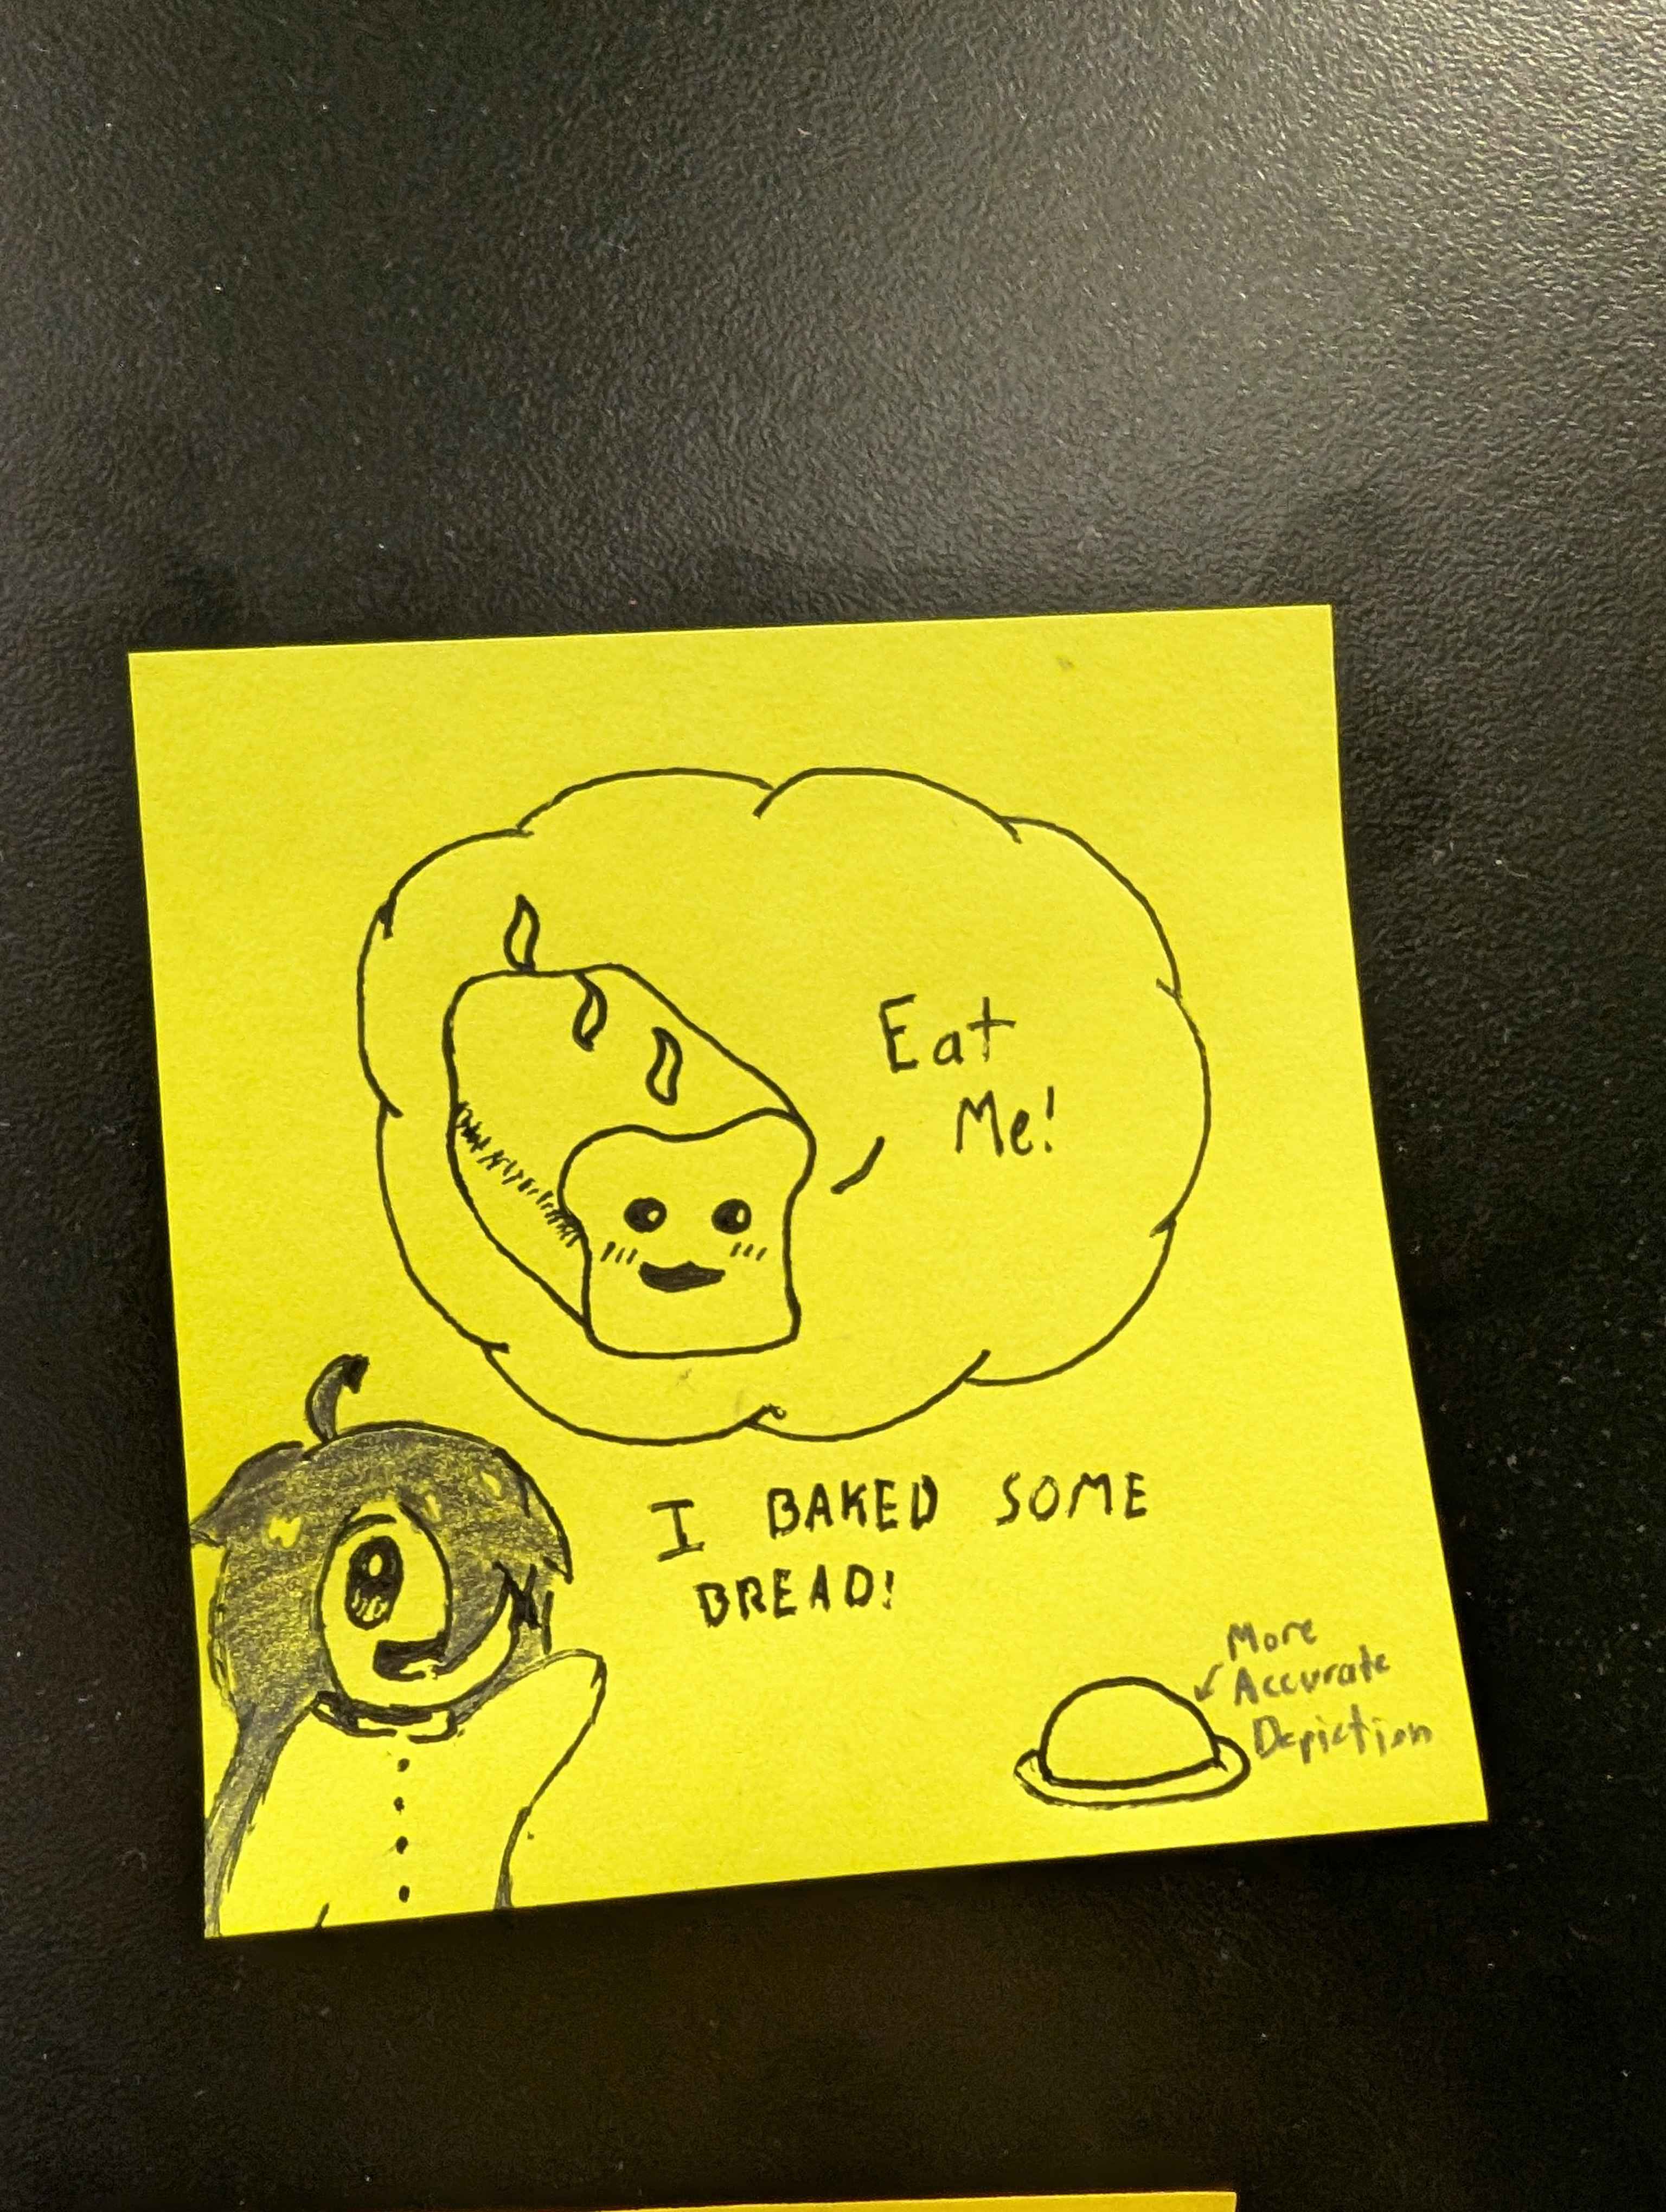 Eat
Me!
I BAKED SOME
BREAD!
More
Accurate
Depiction